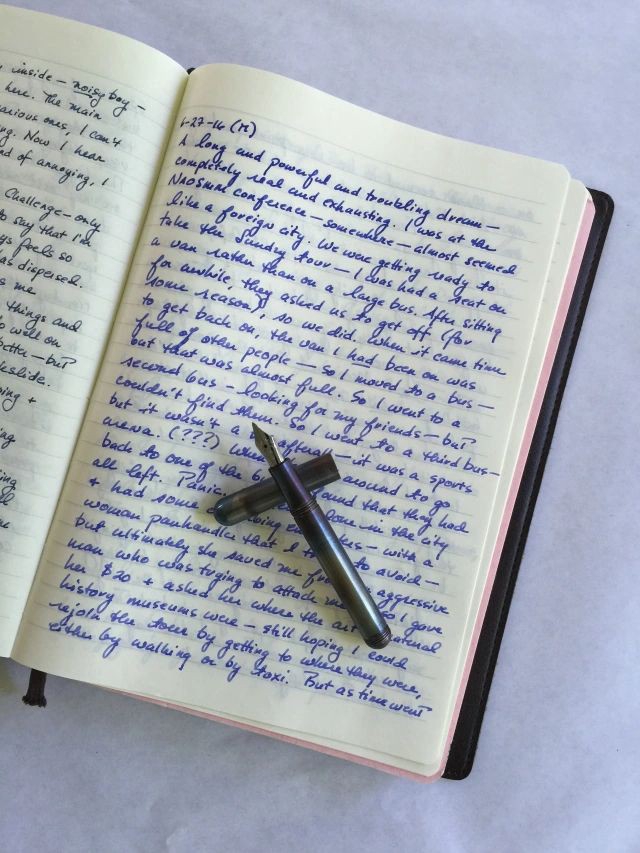 inside – noisy boy –
here. The main
various ones, I can't
Now I hear
of annoying, I
Challenge – only
to say that I'm
feels so
has dispersed.
me
things and
well on
better – but
+
-27-16 (M)
A long and powerful and troubling dream –
completely real and exhausting. I was at the
NAOSMM conference – somewhere – almost seemed
like a foreign city. We were getting ready to
take the Sunday tour – I was had a seat on
a van rather than on a large bus. After sitting
for awhile, they asked us to get off (for
some reason), so we did. When it came time
to get back on, the van I had been on was
full of other people – so I moved to a bus –
but that was almost full. So I went to a
second bus – looking for my friends – but
couldn't find them. So I went to a third bus –
but it wasn't a after all – it was a sports
arena. (???) around to go
back to one of the found that they had
all left. Panic. alone in the city
+ had some – with a
woman panhandler that I to avoid –
but ultimately she saved me aggressive
man who was trying to attack me so I gave
her $20 + asked her where the art natural
history museums were – still hoping I could
rejoin the tour by getting to where they were,
either by walking or by taxi. But as time went